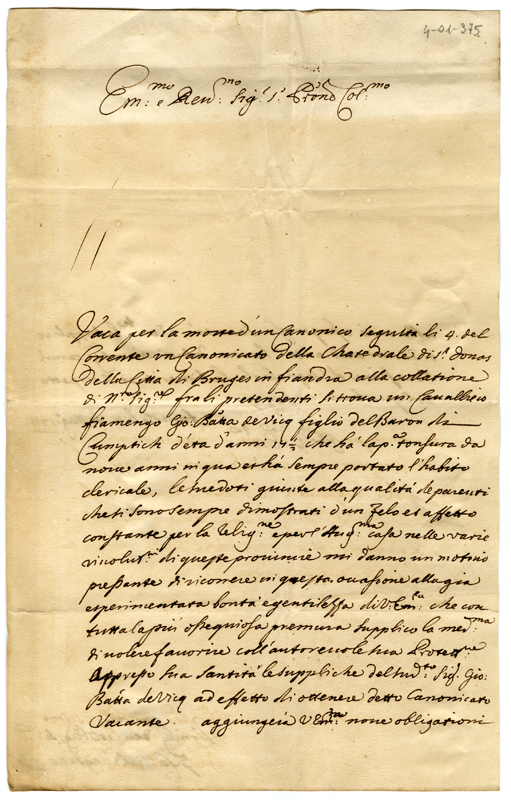 4-01-375.
Em:mo e Rev:mo Sig:r S:r Pron Col:mo
Vaca per la morte d'un Canonico seguita li 4. del
Corrente un Canonicato della Chatedrale di s.t Donas
della Citta di Bruges in fiandra alla collatione
di N:ro Sig:re fra li pretendenti si trova un Cavalliero
fiamengo Gio: Batta de Vicq figlio del Baron di
Cumptich d'eta d'anni che há la p.a tonsura da
nove anni in qua et há sempre portato l'habito
clericale, le sue doti giunte alla qualitá de parenti
che si sono sempre dimostrati d'un zelo et affetto
constante per la Relig:ne e per l'Aug:ma casa nelle varie
rivolut:ni di queste provincie mi danno un motivo
pressante di ricorrere in questa occasione alla gia
esperimentata bontá e gentilezza di V: Em:za che con
tutta la piú ossequiosa premura supplico la med:ma
di volere favorire coll'autorevole sua Protett:ne
appresso sua Santitá le suppliche del sud:to Sig.r Gio:
Batta de Vicq ad effetto di ottenere detto Canonicato
Vacante. aggiungerá V Em:za nove obligationi